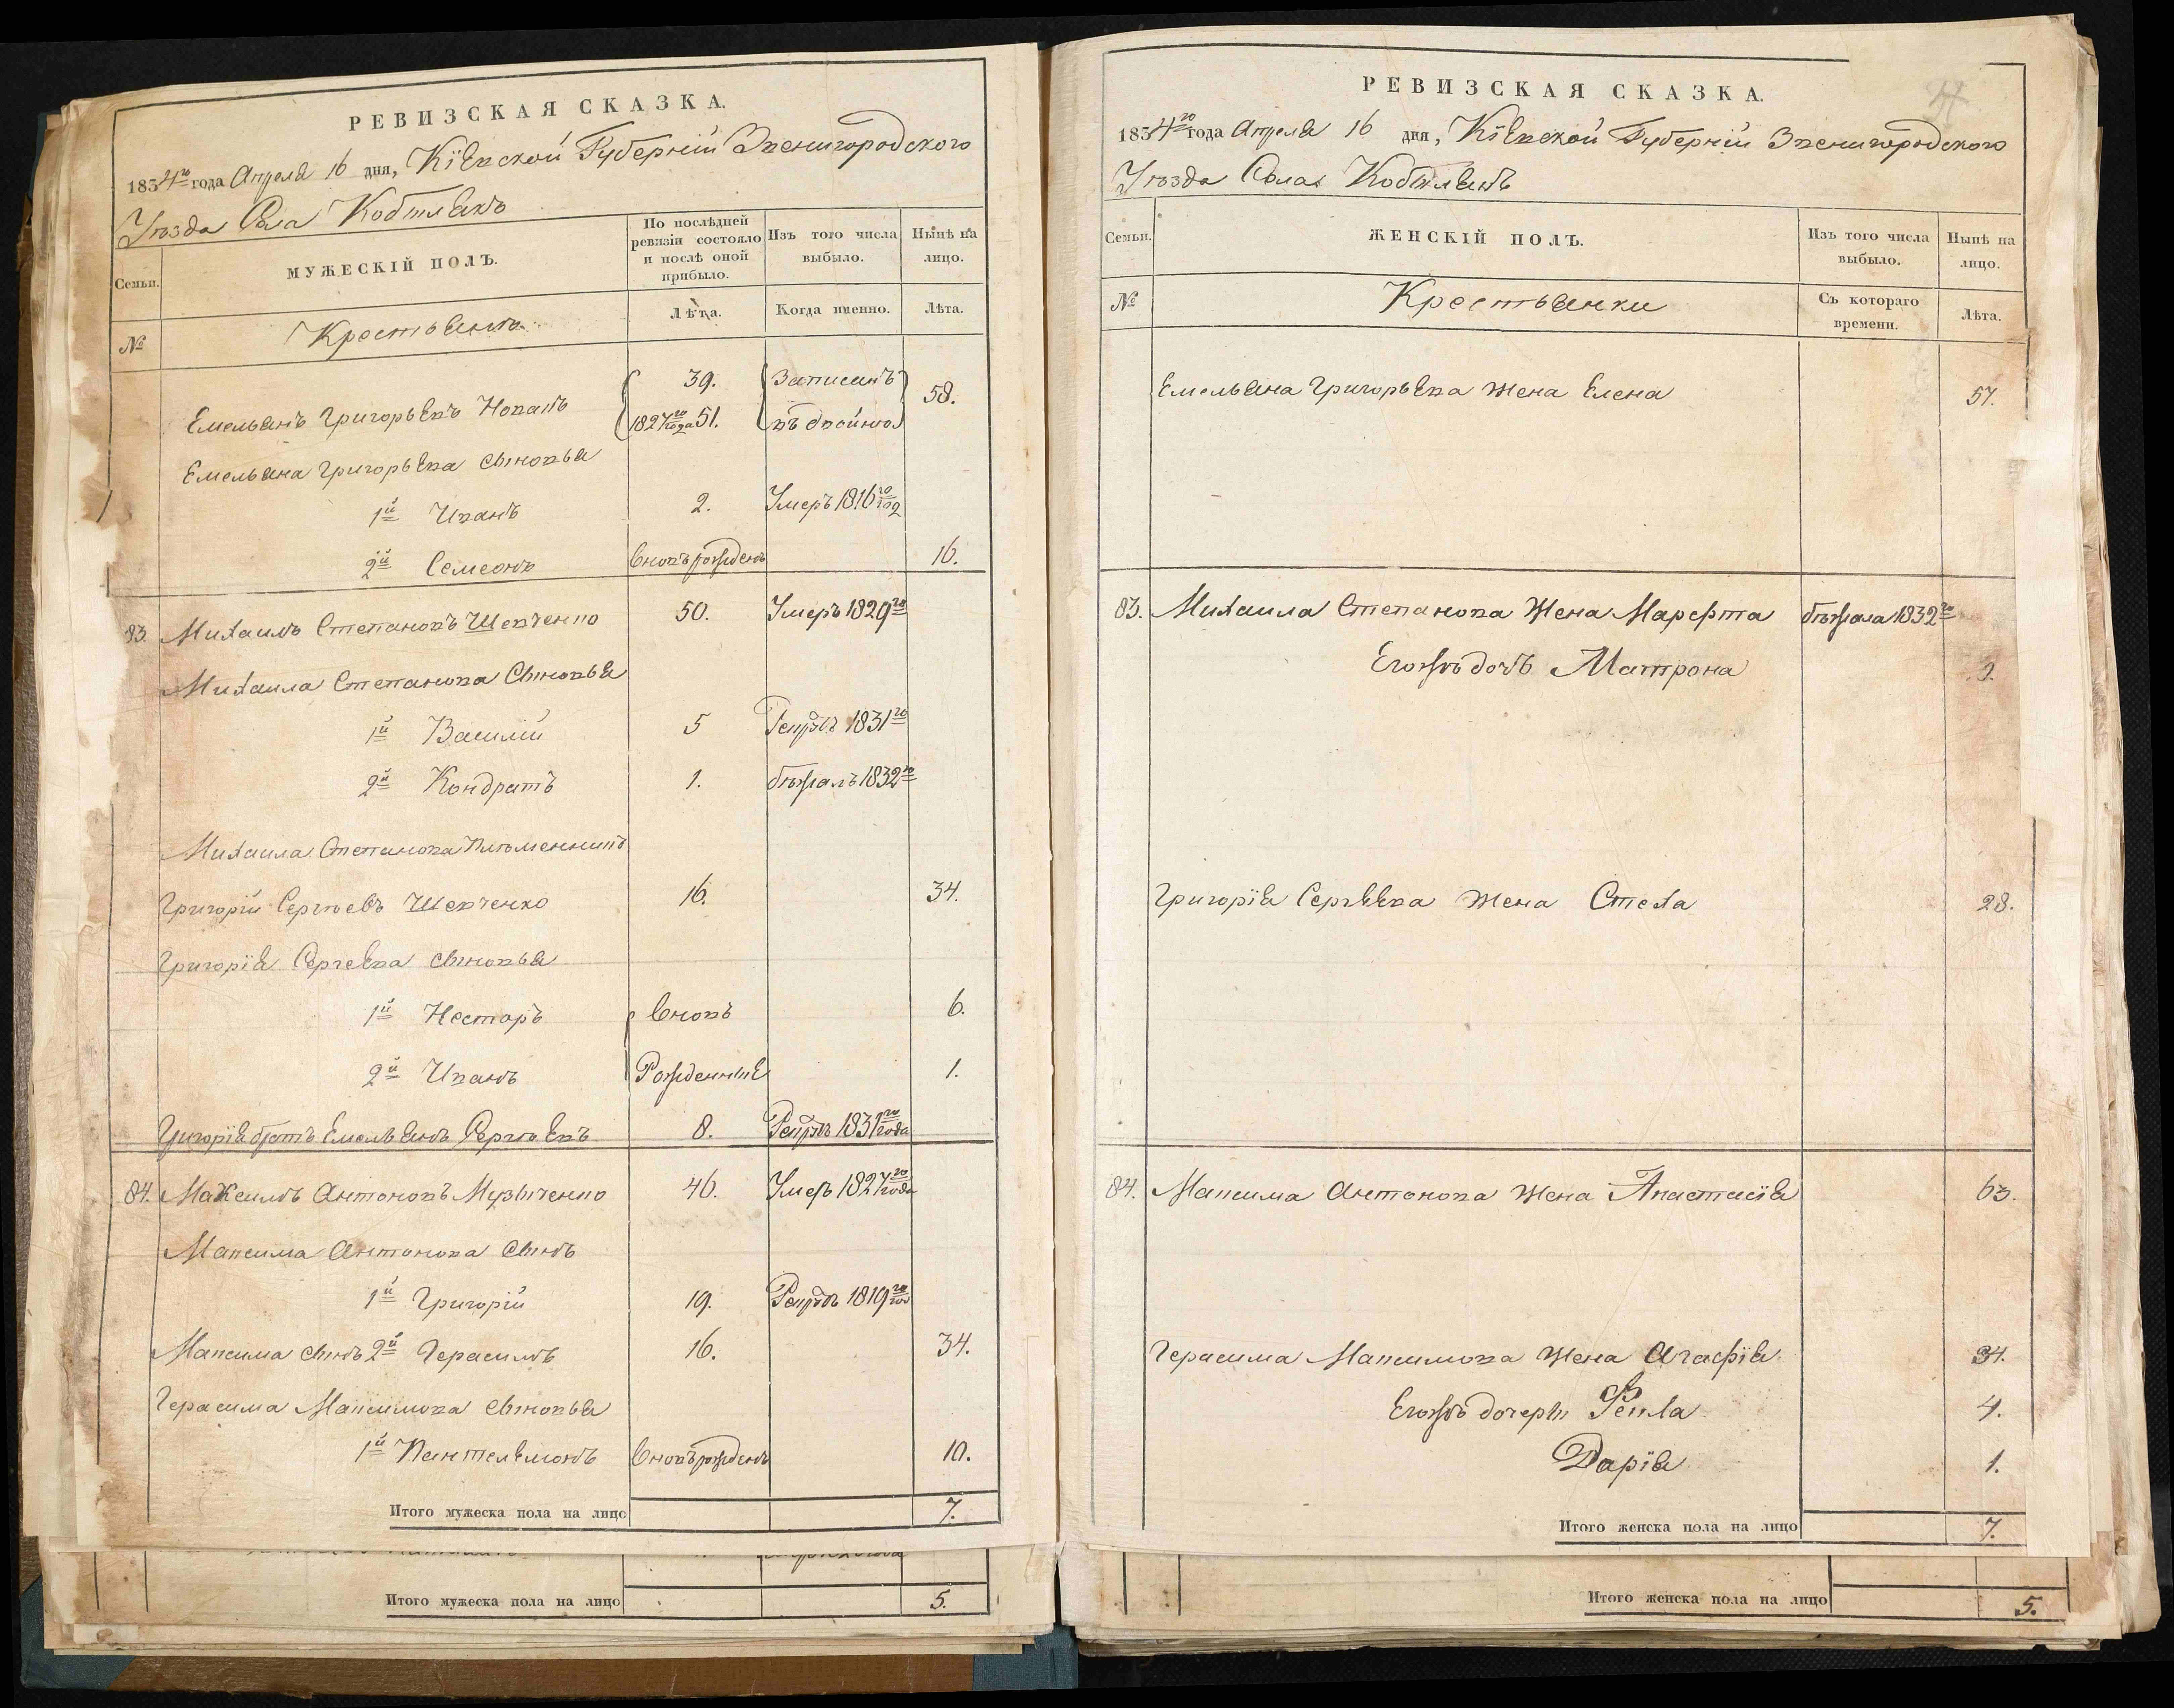 РЕВИЗСКАЯ СКАЗКА.
1834го года Апреля 16 дня, Кіевской Губерніи Звенигородского
Уѣзда Села
Семьи.
МУЖЕСКІЙ ПОЛЪ.
По послѣдней ревизіи состояло и послѣ оной прибыло.
Изъ того числа выбыло.
Нынѣ на лицо.
№
Крестьянъ
Лѣта.
Когда именно.
Лѣта.
Емельянъ Григорьевъ Новакъ 39. Записанъ 58.
1827го года 51. въ двойнѣ
Емельяна Григорьева сыновья
1й Иванъ 2. Умеръ 1816го год
2й Семеонъ вновь рожденъ 16.
83. Михаилъ Степановъ Шевченко 50. Умеръ 1829го
Михаила Степанова Сыновья
1й Василій 5 Рекрутъ 1831го
2й Кондратъ 1. бѣжалъ 1832го
Михаила Степанова Племенникъ
Григорій Сергѣевъ Шевченко 16. 34.
Григорія Сергеева сыновья
1й Несторъ Вновь 6.
2й Иванъ Рожденные 1.
Григорія братъ Емельянъ Сергѣевъ 8. Рекрутъ 1831го года
84. Максимъ Антоновъ Музыченко 46. Умеръ 1827го года
Максима Антонова сынъ
1й Григорій 19. Рекрутъ 1819го
Максима сынъ 2й Герасимъ 16. 34.
Герасима Максимова сыновья
1й Пантелемонъ вновь рожденъ 10.
Итого мужеска пола на лицо 7.
Итого мужеска пола на лицо 5.
РЕВИЗСКАЯ СКАЗКА.
1834го года Апреля 16 дня, Кіевской Губерніи Звенигородского
Уѣзда Села
Семьи.
ЖЕНСКІЙ ПОЛЪ.
Изъ того числа выбыло.
Нынѣ на лицо.
№
Крестьянки
Съ котораго времени.
Лѣта.
Емельяна Григорьева жена Елена 57.
83. Михаила Степанова Жена Марфта бѣжала 1832го
Егожъ дочь Матрона
Григорія Сергѣева жена Стеха 28.
84. Максима Антонова жена Анастасія 63.
Герасима Максимова жена Агафія 34.
Егожъ дочеры Фекла 4.
Дарія 1.
Итого женска пола на лицо 7.
Итого женска пола на лицо 5.